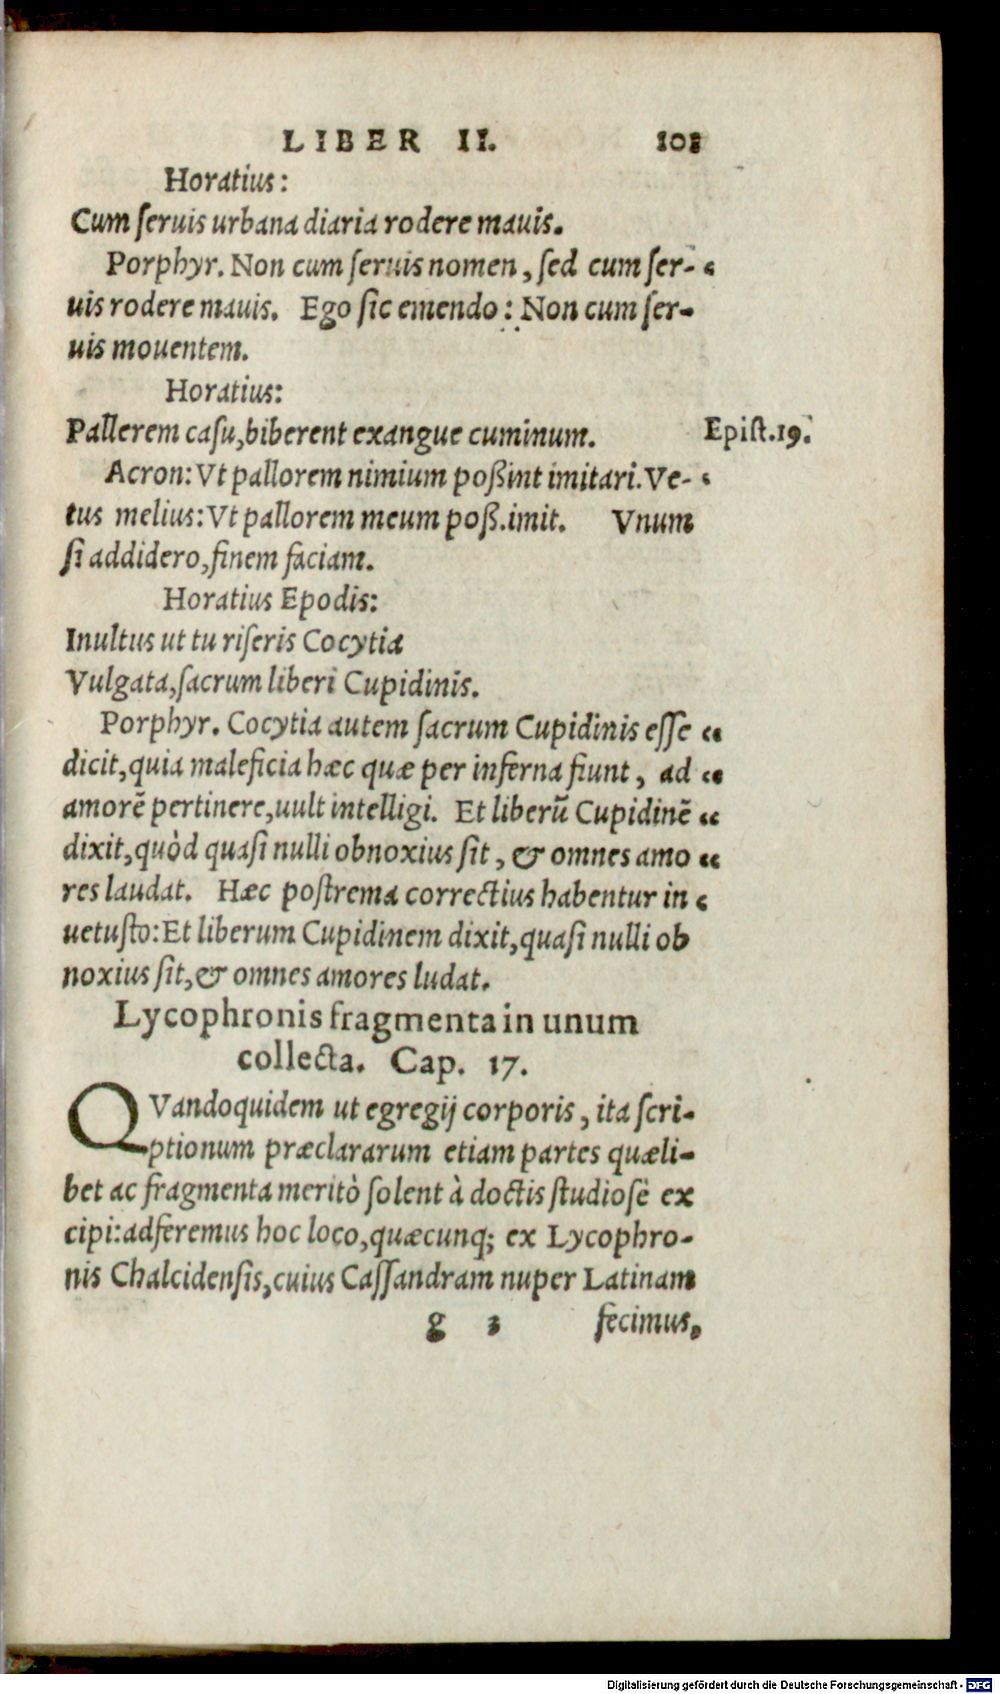 LIBER II. 101
Horatius:
Cum ſeruis urbana diaria rodere mauis.
Porphyr. Non cum ſeruis nomen, ſed cum ſer- “
uis rodere mauis. Ego ſic emendo: Non cum ſer-
uis mouentem.
Horatius:
Pallerem caſu, biberent exangue cuminum. Epiſt. 19.
Acron: Vt pallorem nimium poßint imitari. Ve- “
tus melius: Vt pallorem meum poß. imit. Vnum
ſi addidero, finem faciam.
Horatius Epodis:
Inultus ut tu riſeris Cocytia
Vulgata, ſacrum liberi Cupidinis.
Porphyr. Cocytia autem ſacrum Cupidinis eſſe “
dicit, quia maleficia hæc quæ per inferna fiunt, ad “
amorẽ pertinere, uult intelligi. Et liberũ Cupidinẽ “
dixit, quòd quaſi nulli obnoxius ſit, & omnes amo “
res laudat. Hæc poſtrema correctius habentur in “
uetuſto: Et liberum Cupidinem dixit, quaſi nulli ob
noxius ſit, & omnes amores ludat.
Lycophronis fragmenta in unum
collecta. Cap. 17.
QVandoquidem ut egregij corporis, ita ſcri-
ptionum præclararum etiam partes quæli-
bet ac fragmenta meritò ſolent à doctis ſtudioſè ex
cipi: adferemus hoc loco, quæcunq; ex Lycophro-
nis Chalcidenſis, cuius Caſſandram nuper Latinam
g 3 fecimus,
Digitalisierung gefördert durch die Deutsche Forschungsgemeinschaft - DFG